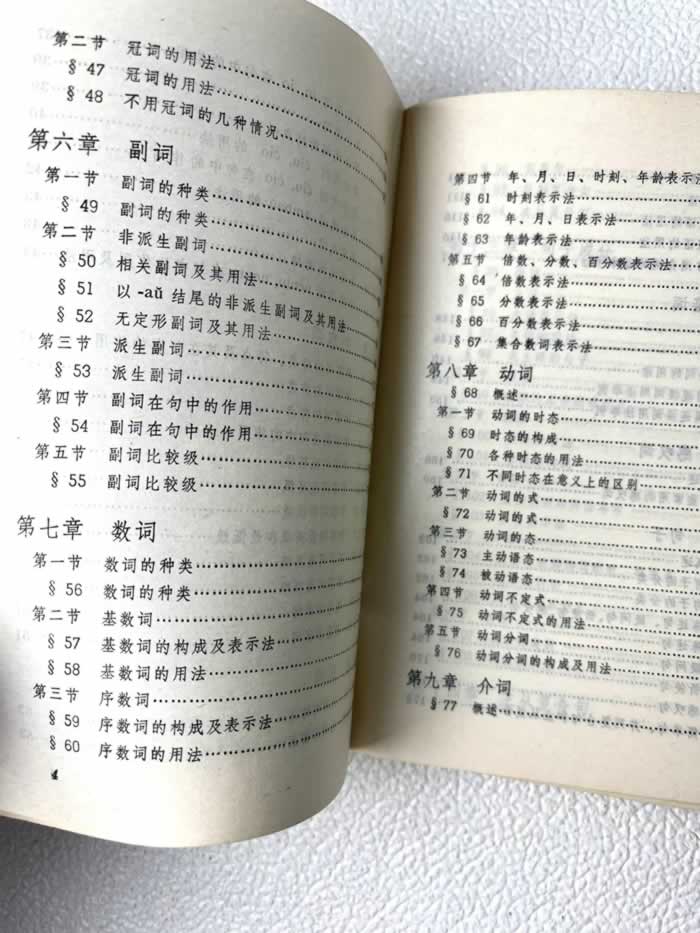 第二节 冠词的用法
§ 47 冠词的用法
§ 48 不用冠词的几种情况
第六章 副词
第一节 副词的种类
§ 49 副词的种类
第二节 非派生副词
§ 50 相关副词及其用法
§ 51 以 -aŭ 结尾的非派生副词及其用法
§ 52 无定形副词及其用法
第三节 派生副词
§ 53 派生副词
第四节 副词在句中的作用
§ 54 副词在句中的作用
第五节 副词比较级
§ 55 副词比较级
第七章 数词
第一节 数词的种类
§ 56 数词的种类
第二节 基数词
§ 57 基数词的构成及表示法
§ 58 基数词的用法
第三节 序数词
§ 59 序数词的构成及表示法
§ 60 序数词的用法
4
第四节 年、月、日、时刻、年龄表示法
§ 61 时刻表示法
§ 62 年、月、日表示法
§ 63 年龄表示法
第五节 倍数、分数、百分数表示法
§ 64 倍数表示法
§ 65 分数表示法
§ 66 百分数表示法
§ 67 集合数词表示法
第八章 动词
§ 68 概述
第一节 动词的时态
§ 69 时态的构成
§ 70 各种时态的用法
§ 71 不同时态在意义上的区别
第二节 动词的式
§ 72 动词的式
第三节 动词的态
§ 73 主动语态
§ 74 被动语态
第四节 动词不定式
§ 75 动词不定式的用法
第五节 动词分词
§ 76 动词分词的构成及用法
第九章 介词
§ 77 概述